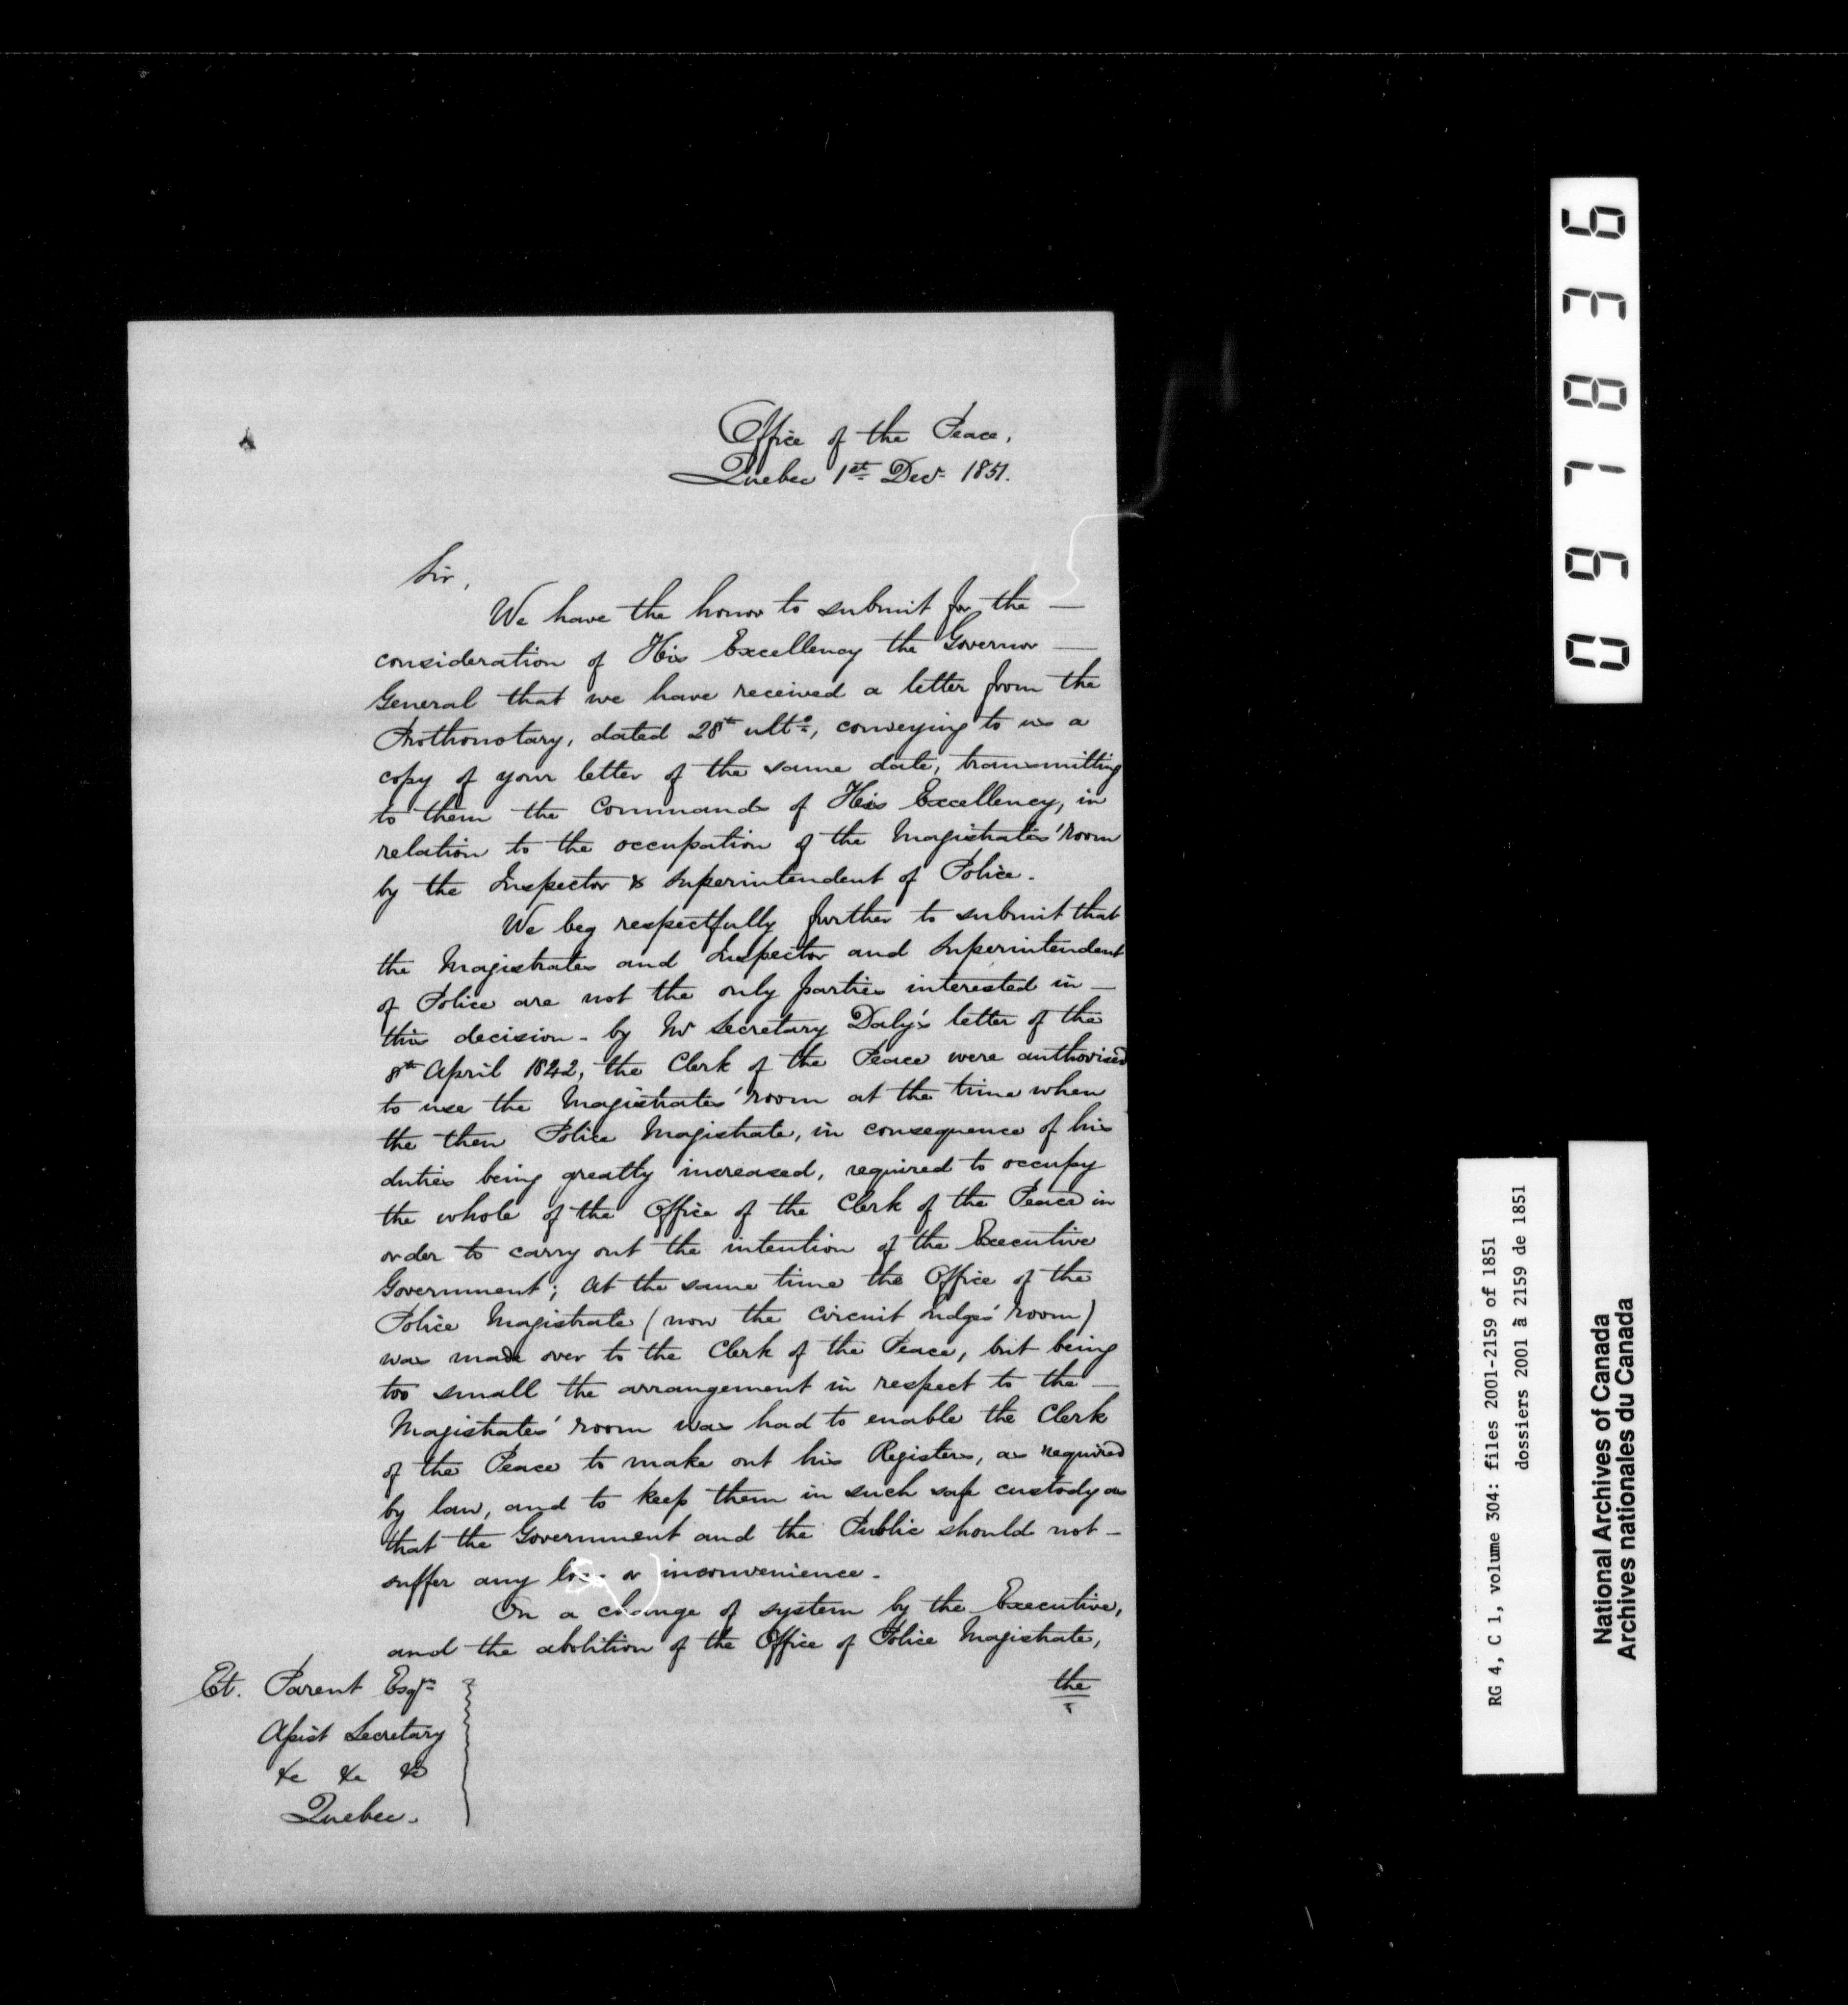 Office of the Peace,
Quebec 1st Decr 1851.
Sir,
We have the honor to submit for the —
consideration of His Excellency the Governor —
General that we have received a letter from the
Prothonotary, dated 28th ulto, conveying to us a
copy of your letter of the same date, transmitting
to them the Commands of His Excellency, in
relation to the occupation of the Magistrates' room
by the Inspector & Superintendent of Police.
We beg respectfully further to submit that
the Magistrates and Inspector and Superintendent
of Police are not the only parties interested in —
this decision - by Mr Secretary Daly's letter of the
8th April 1842, the Clerk of the Peace were authorised
to use the Magistrates' room at the time when
the then Police Magistrate, in consequence of his
duties being greatly increased, required to occupy
the whole of the Office of the Clerk of the Peace in
order to carry out the intention of the Executive
Government; at the same time the Office of the
Police Magistrate (now the circuit Judges' room)
was made over to the Clerk of the Peace, but being
too small the arrangement in respect to the —
Magistrates' room was had to enable the Clerk
of the Peace to make out his Registers, as required
by law, and to keep them in such safe custody as
that the Government and the Public should not —
suffer any loss or inconvenience.
On a change of system by the Executive,
and the abolition of the Office of Police Magistrate,
the
Et. Parent Esqre
Assist Secretary
&c &c &c
Quebec.
097836
RG 4, C 1, volume 304: files 2001-2159 of 1851
dossiers 2001 à 2159 de 1851
National Archives of Canada
Archives nationales du Canada